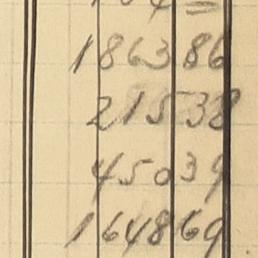 1863 86
215 38
450 39
1648 69